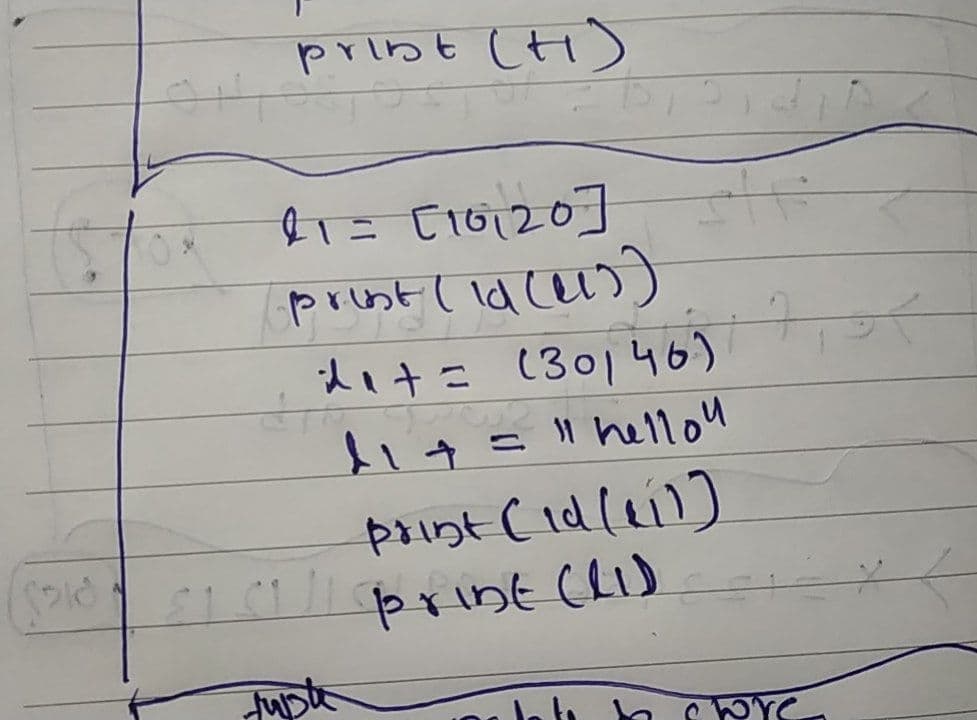 print (t1)
l1 = [10,20]
print ( id (l1))
l1 + = (30,40)
l1 + = "hello"
print ( id (l1))
print (l1)
tuple
to store